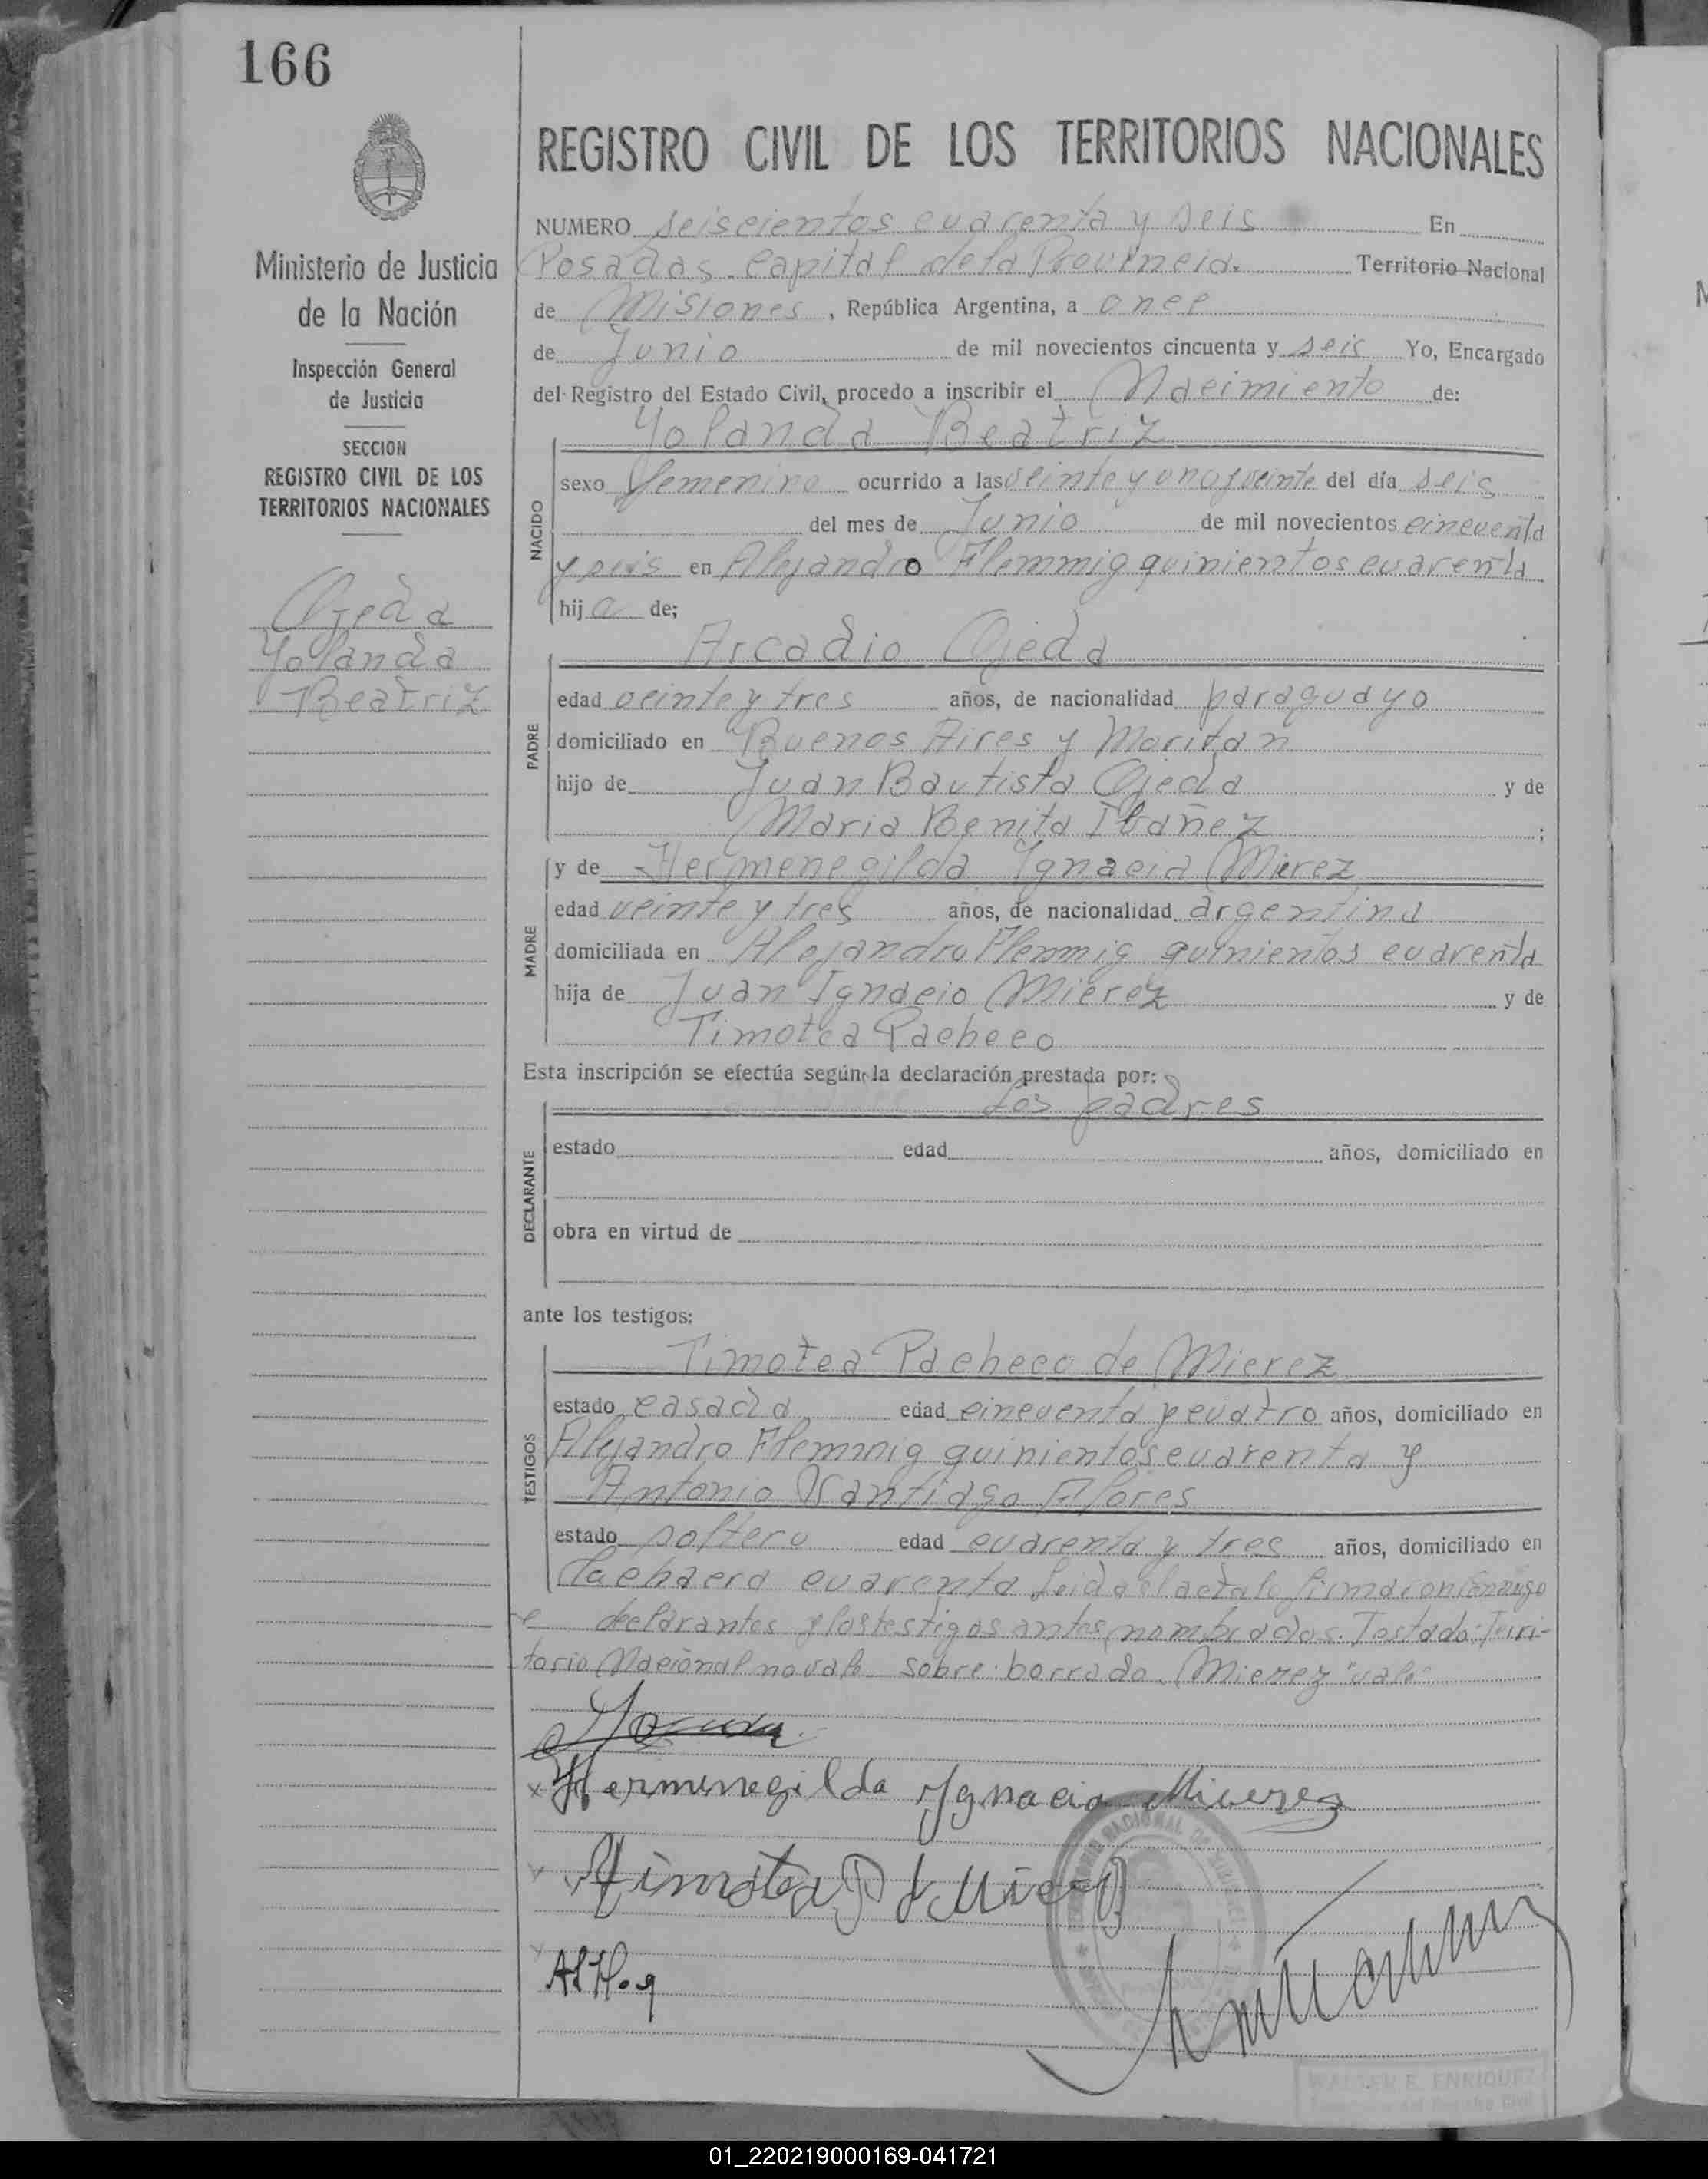 166
REGISTRO CIVIL DE LOS TERRITORIOS NACIONALES
Ministerio de Justicia
de la Nación
Inspección General
de Justicia
SECCION
REGISTRO CIVIL DE LOS
TERRITORIOS NACIONALES
Ojeda
Yolanda
Beatriz
NUMERO seiscientos cuarenta y seis En
Posadas. Capital de la Provincia. Territorio Nacional
de Misiones, República Argentina, a once
de Junio de mil novecientos cincuenta y seis Yo, Encargado
del Registro del Estado Civil, procedo a inscribir el Nacimiento de:
Yolanda Beatriz
NACIDO
sexo femenino ocurrido a las veinte y una y veinte del día seis
del mes de Junio de mil novecientos cincuenta
y seis en Alejandro Flemmig quinientos cuarenta
hija de;
Arcadio Ojeda
PADRE
edad veinte y tres años, de nacionalidad paraguayo
domiciliado en Buenos Aires y Moritan
hijo de Juan Bautista Ojeda y de
Maria Benita Ibañez;
y de Hermenegilda Ignacia Mierez
MADRE
edad veinte y tres años, de nacionalidad argentina
domiciliada en Alejandro Flemmig quinientos cuarenta
hija de Juan Ignacio Mierez y de
Timotea Pacheco
Esta inscripción se efectúa según la declaración prestada por:
los padres
DECLARANTE
estado edad años, domiciliado en
obra en virtud de
ante los testigos:
Timotea Pacheco de Mierez
TESTIGOS
estado casada edad cincuenta y cuatro años, domiciliado en
Alejandro Flemmig quinientos cuarenta y
Antonio Santiago Flores
estado soltero edad cuarenta y tres años, domiciliado en
La chacra cuarenta Leida el acta la firmaron conmigo
declarantes y los testigos antes nombrados. Testado: Terri-
torio Nacional no vale sobre: borrado. Mierez "vale"
Hermenegilda Ygnacia Mierez
Timotea P d Mierez
WALTER E. ENRIQUEZ
01_220219000169-041721